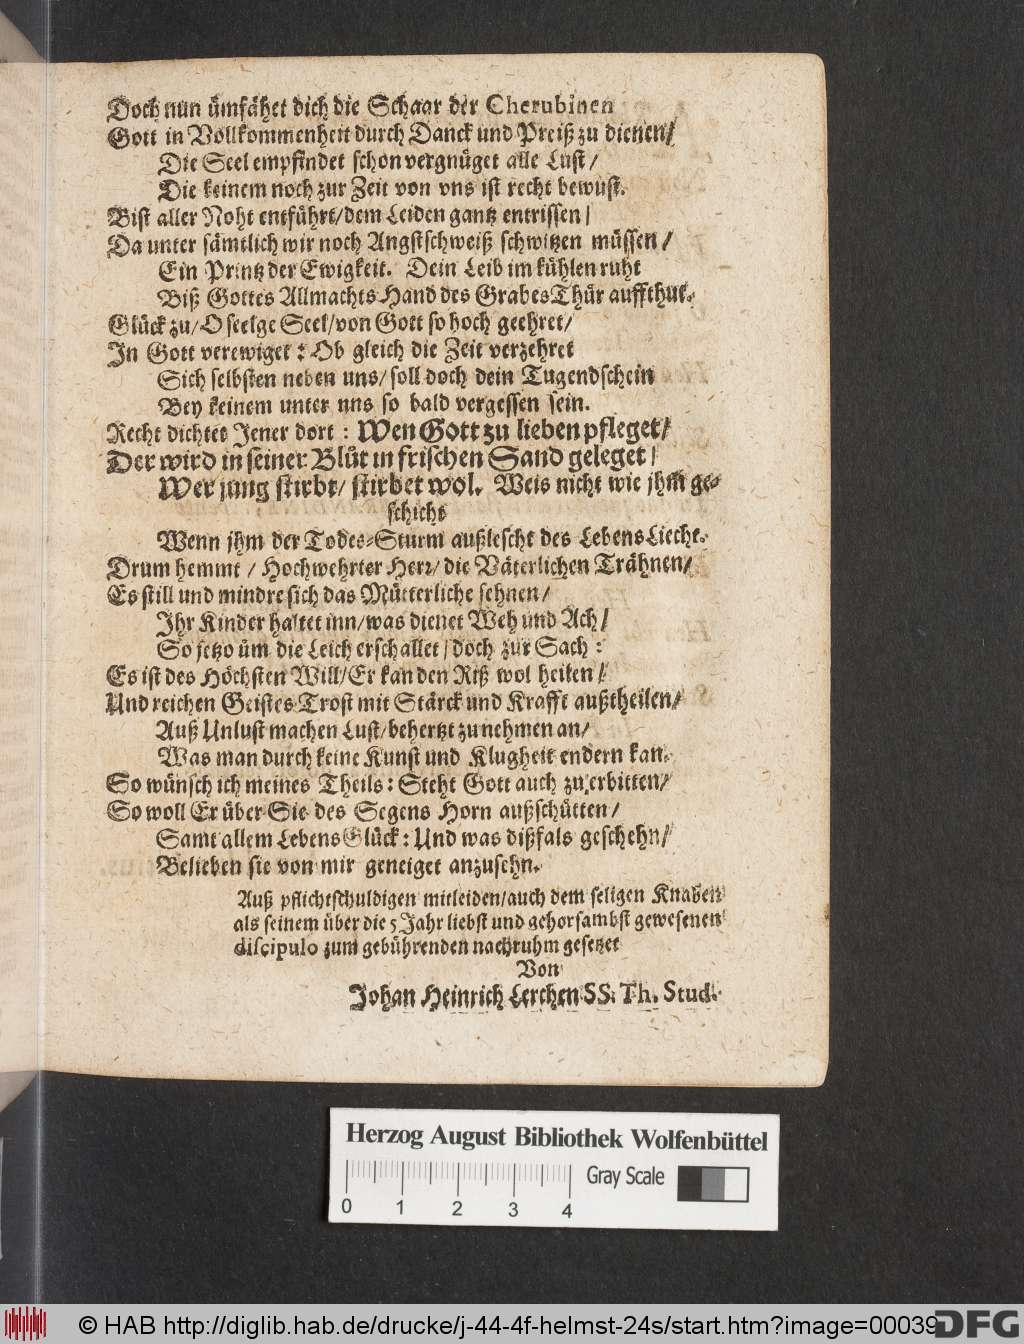 Doch nun ümfähet dich die Schaar der Cherubinen
Gott in Vollkommenheit durch Danck und Preiß zu dienen/
Die Seel empfindet schon vergnüget alle Lust/
Die keinem noch zur Zeit von vns ist recht bewust.
Bist aller Noht entführt/dem Leiden gantz entrissen/
Da unter sämtlich wir noch Angstschweiß schwitzen müssen/
Ein Printz der Ewigkeit. Dein Leib im kühlen ruht
Biß Gottes Allmachts-Hand des Grabes Thür auffthut.
Glück zu/O seelge Seel/von Gott so hoch geehret/
In Gott verewiget: Ob gleich die Zeit verzehret
Sich selbsten neben uns/soll doch dein Tugendschein
Bey keinem unter uns so bald vergessen sein.
Recht dichtet Jener dort: Wen Gott zu lieben pfleget/
Der wird in seiner Blüt in frischen Sand geleget/
Wer jung stirbt/stirbet wol. Weis nicht wie jhm ge-
schicht
Wenn jhm der Todes-Sturm außlescht des Lebens Liecht.
Drum hemmt/Hochwehrter Herr/die Väterlichen Trähnen/
Es still und mindre sich das Mütterliche sehnen/
Ihr Kinder haltet inn/was dienet Weh und Ach/
So jetzo üm die Leich erschallet/doch zur Sach:
Es ist des Höchsten Will/Er kan den Riß wol heilen/
Und reichen Geistes Trost mit Stärck und Krafft außtheilen/
Auß Unlust machen Lust/behertzt zu nehmen an/
Was man durch keine Kunst und Klugheit endern kan.
So wünsch ich meines Theils: Steht Gott auch zu erbitten/
So woll Er über Sie des Segens Horn außschütten/
Samt allem Lebens Glück: Und was dißfals geschehn/
Belieben sie von mir geneiget anzusehn.
Auß pflichtschuldigen mitleiden/auch dem seligen Knaben
als seinem über die 5 Jahr liebst und gehorsambst gewesenen
discipulo zum gebührenden nachruhm gesetzet
Von
Johan Heinrich Lerchen SS. Th. Stud.
Herzog August Bibliothek Wolfenbüttel
Gray Scale
0 1 2 3 4
© HAB http://diglib.hab.de/drucke/j-44-4f-helmst-24s/start.htm?image=00039
DFG